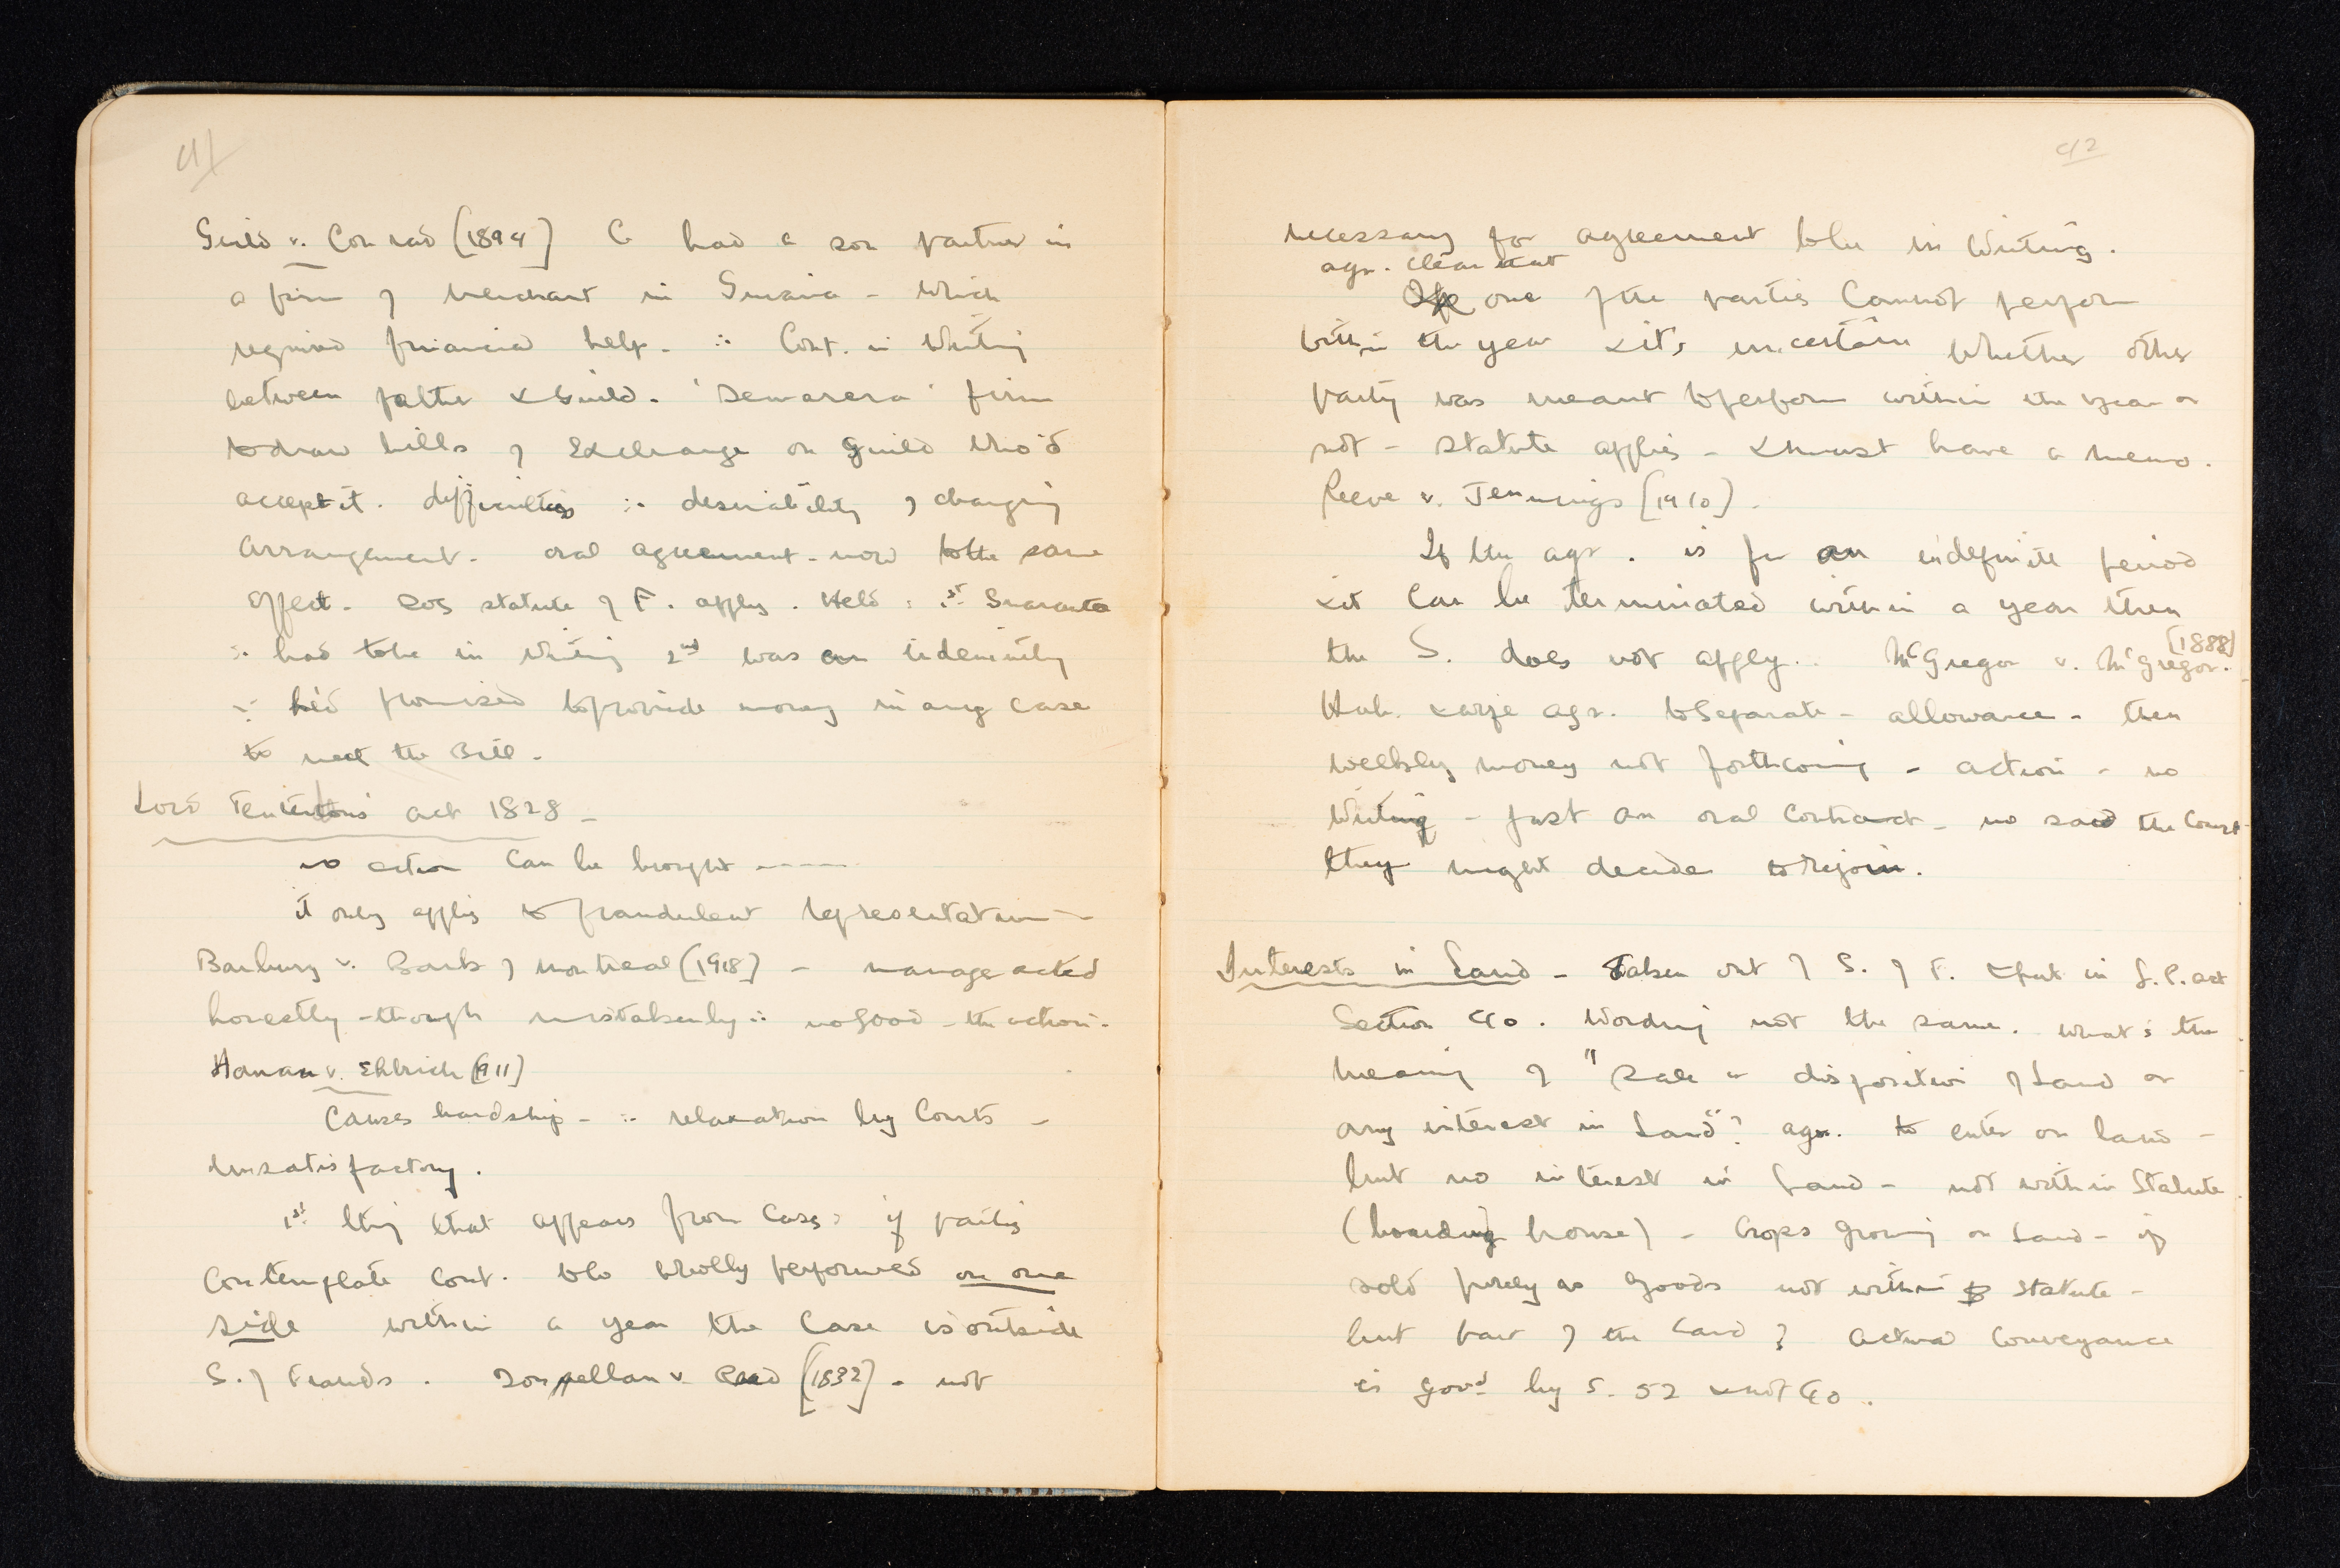 41
Guild v. Conrad [1894] C had a son partner in
a firm of merchant in Guiana - which
required financial help. ∴ Cont. in writing
between father & Guild. 'Demerara' firm
to draw bills of Exchange on Guild who'd
accept it. difficulties ∴ desirability of changing
arrangement. oral agreement - now to the same
effect. Does statute of F. apply. Held: 1st Guarantee
∴ had to be in writing 2nd was an indemnity
∵ he'd promised to provide money in any case
to meet the Bill.
Lord Tenterton's Act 1828 -
no action can be brought -----
it only applies to fraudulent representation -
Banbury v. Bank of Montreal [1918] - manager acted
honestly - though mistakenly ∴ no good - the action.
Hanau v. Ehlrich [1911]
Causes hardship - ∴ relaxation by Courts -
unsatisfactory.
1st thing that appears from Cases: if parties
contemplate cont. to be wholly performed on one
side within a year the case is outside
S. of Frauds. Donnellan v. Read [1832] - not
42
necessary for agreement to be in writing.
agr. clear that
If one of the parties cannot perform
within the year & it's uncertain whether other
party was meant to perform within the year or
not - statute applies - & must have a memo.
Reeve v. Jennings [1910].
If the agr. is for an indefinite period
& it can be terminated within a year then
the S. does not apply. McGregor v. McGregor. [1888]
Hub. & wife agr. to separate - allowance - then
weekly money not forthcoming - action - no
writing - just an oral contract - no said the Court
they might decide to rejoin.
Interests in Land - Taken out of S. of F. & put in L.P. Act
Section 40. Wording not the same. What's the
meaning of "sale or disposition of Land or
any interest in Land"? agr. to enter on land -
but no interest in Land - not within Statute
(boarding house) - Crops growing on Land - if
sold purely as goods not within statute -
but part of the Land? Actual Conveyance
is govd by S. 52 & not 40.